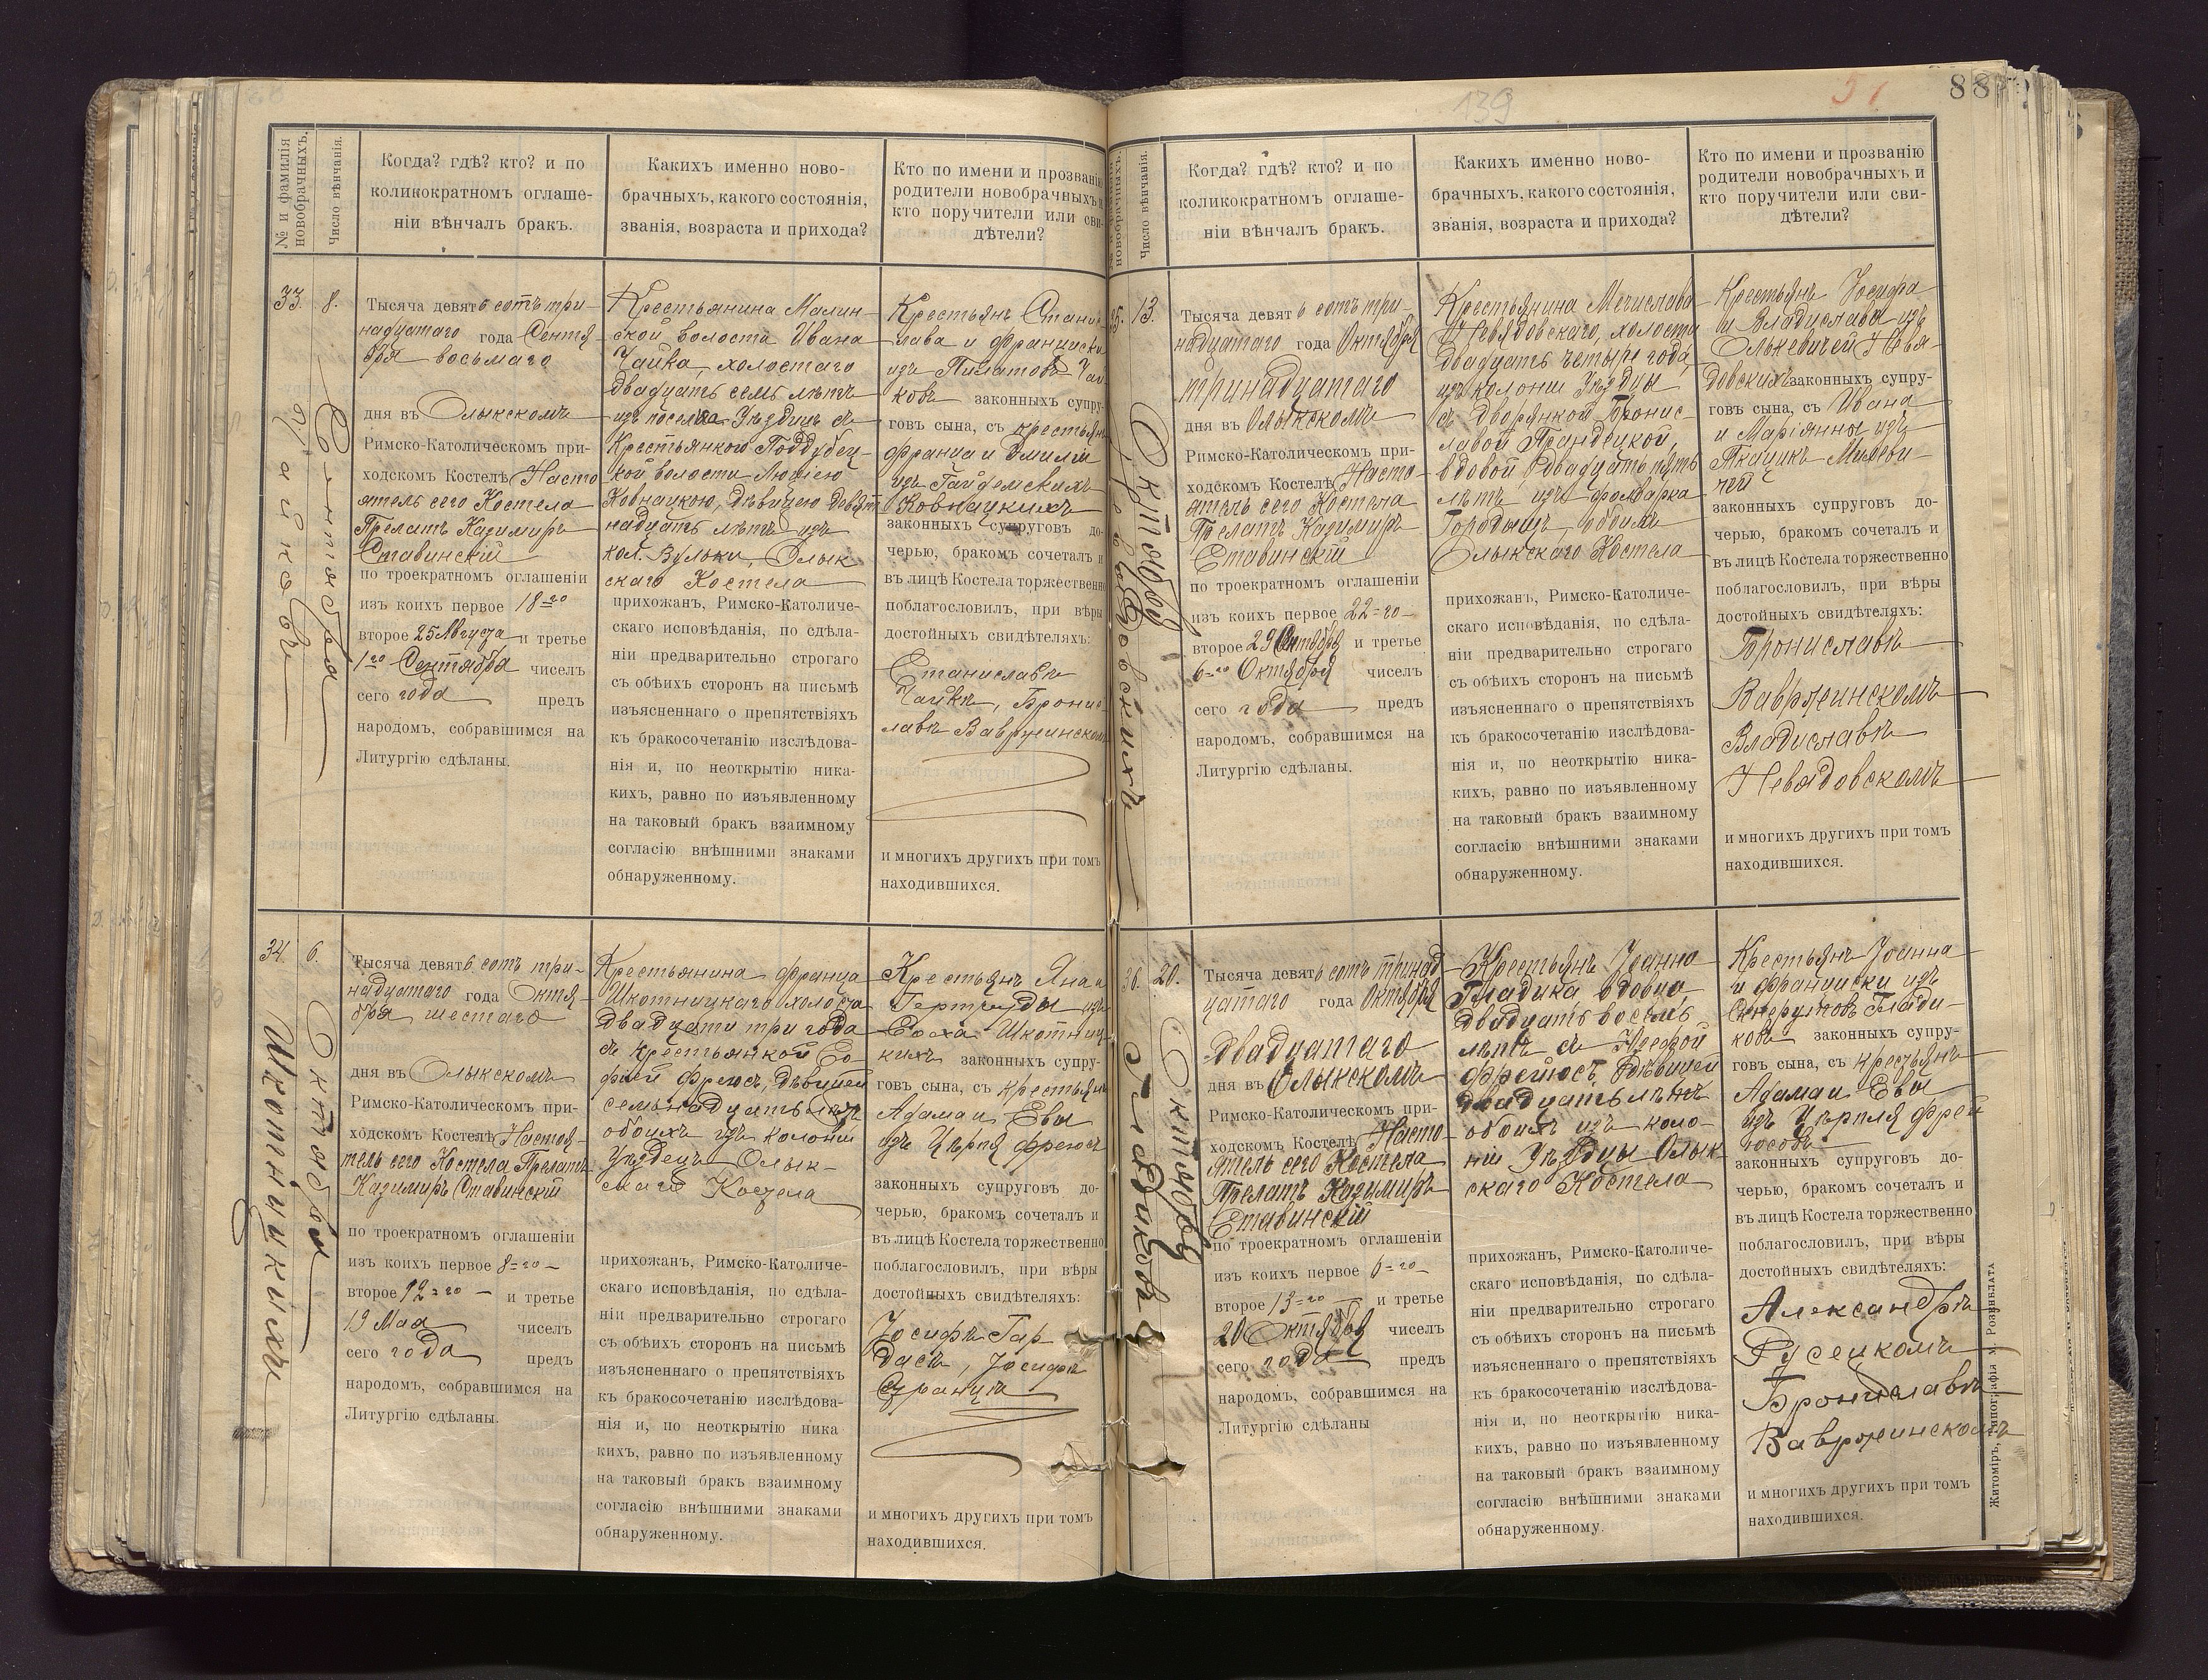 № и фамилія новобрачныхъ.
Число вѣнчанія.
Когда? гдѣ? кто? и по
коликократномъ оглаше-
ніи вѣнчалъ бракъ.
Какихъ именно ново-
брачныхъ, какого состоянія,
званія, возраста и прихода?
Кто по имени и прозванію
родители новобрачныхъ и
кто поручители или сви-
дѣтели?
33.
8.
Сентября
Чайковъ
Тысяча девятьсотъ три-
надцатаго года Сентя-
бря восьмаго
дня въ Олыкскомъ
Римско-Католическомъ при-
ходскомъ Костелѣ Насто
ятель сего Костела
Прелатъ Казимиръ
Ставинскій
по троекратномъ оглашеніи
изъ коихъ первое 18-го
второе 25 Августа и третье
1-го Сентября чиселъ
сего года предъ
народомъ, собравшимся на
Литургію сдѣланы.
Крестьянина Малин-
ской волости Ивана
Чайка, холостаго
двадцать семь лѣтъ
изъ поселка Уѣздцъ съ
Крестьянкою Поддубец-
кой волости Люціею
Ковнацкою, дѣвицею девят
надцать лѣтъ изъ
кол. Вульки, Олык
скаго Костела
прихожанъ, Римско-Католиче-
скаго исповѣданія, по сдѣла-
ніи предварительно строгаго
съ обѣихъ сторонъ на письмѣ
изъясненнаго о препятствіяхъ
къ бракосочетанію изслѣдова-
нія и, по неоткрытію ника-
кихъ, равно по изъявленному
на таковый бракъ взаимному
согласію внѣшними знаками
обнаруженному.
Крестьянъ Стани-
лава и Франциски
изъ Пилатовъ Чай
ковъ законныхъ супру-
говъ сына, съ крестьянъ
Франца и Эмиліи
изъ Гайдемскихъ
Ковнацкихъ
законныхъ супруговъ до-
черью, бракомъ сочеталъ и
въ лицѣ Костела торжественно
поблагословилъ, при вѣры
достойныхъ свидѣтеляхъ:
Станиславъ
Чайкѣ, Бронис-
лавѣ Вавржинскомъ
и многихъ другихъ при томъ
находившихся.
34.
6.
Октября
Шкотницкихъ
Тысяча девятьсотъ три-
надцатаго года Октя-
бря шестаго
дня въ Олыкскомъ
Римско-Католическомъ при-
ходскомъ Костелѣ Настоя-
тель сего Костела Прелатъ
Казимиръ Ставинскій
по троекратномъ оглашеніи
изъ коихъ первое 8-го
второе 12-го и третье
19 Мая чиселъ
сего года предъ
народомъ, собравшимся на
Литургію сдѣланы.
Крестьянина Франца
Шкотницкаго холоста
двадцати три года
съ крестьянкой Со
фіей Фреюсъ, дѣвицей
семьнадцать лѣтъ
обоихъ изъ колоніи
Уѣздецъ Олык-
скаго Костела
прихожанъ, Римско-Католиче-
скаго исповѣданія, по сдѣла-
ніи предварительно строгаго
съ обѣихъ сторонъ на письмѣ
изъясненнаго о препятствіяхъ
къ бракосочетанію изслѣдова-
нія и, по неоткрытію ника
кихъ, равно по изъявленному
на таковый бракъ взаимному
согласію внѣшними знаками
обнаруженному.
Крестьянъ Яна и
Гертруды изъ
Соха Шкотниц-
кихъ законныхъ супру-
говъ сына, съ крестьянъ
Адама и Евы
изъ Цѣрпя Фреюсъ
законныхъ супруговъ до-
черью, бракомъ сочеталъ и
въ лицѣ Костела торжественно
поблагословилъ, при вѣры
достойныхъ свидѣтеляхъ:
Іосифъ Гар
дасъ, Іосифъ
и многихъ другихъ при томъ
находившихся.
139
51
88
новобрачныхъ.
Число вѣнчанія.
Когда? гдѣ? кто? и по
коликократномъ оглаше-
ніи вѣнчалъ бракъ.
Какихъ именно ново-
брачныхъ, какого состоянія,
званія, возраста и прихода?
Кто по имени и прозванію
родители новобрачныхъ и
кто поручители или сви-
дѣтели?
35.
13.
Октября
Невядовскихъ
Тысяча девятьсотъ три-
надцатаго года Октября
тринадцатаго
дня въ Олыкскомъ
Римско-Католическомъ при-
ходскомъ Костелѣ Насто-
ятель сего Костела
Прелатъ Казимиръ
Ставинскій
по троекратномъ оглашеніи
изъ коихъ первое 22-го
второе 29 Сентября и третье
6-го Октября чиселъ
сего года предъ
народомъ, собравшимся на
Литургію сдѣланы.
Крестьянина Мечислава
Невядовскаго, холоста
двадцать четыре года,
изъ колоніи Уѣздцы
съ дворянкой Бронис-
лавой Прандецкой,
вдовой двадцать пять
лѣтъ изъ фольварка
Городищъ, обоихъ
Олыкскаго Костела
прихожанъ, Римско-Католиче-
скаго исповѣданія, по сдѣла-
ніи предварительно строгаго
съ обѣихъ сторонъ на письмѣ
изъясненнаго о препятствіяхъ
къ бракосочетанію изслѣдова-
нія и, по неоткрытію ника-
кихъ, равно по изъявленному
на таковый бракъ взаимному
согласію внѣшними знаками
обнаруженному.
Крестьянъ Іосифа
и Владиславы изъ
Олькевичей Невя-
довскихъ законныхъ супру-
говъ сына, съ Ивана
и Маріянны изъ
Ткачикъ Милеви-
чей
законныхъ супруговъ до-
черью, бракомъ сочеталъ и
въ лицѣ Костела торжественно
поблагословилъ, при вѣры
достойныхъ свидѣтеляхъ:
Брониславѣ
Вавржинскомъ
Владиславѣ
Невядовскомъ
и многихъ другихъ при томъ
находившихся.
36.
20.
Октября
Гладиковъ
Тысяча девятьсотъ тринад
цатаго года Октября
двадцатаго
дня въ Олыкскомъ
Римско-Католическомъ при-
ходскомъ Костелѣ Насто-
ятель сего Костела
Прелатъ Казимиръ
Ставинскій
по троекратномъ оглашеніи
изъ коихъ первое 6-го
второе 13-го и третье
20 Октября чиселъ
сего года предъ
народомъ, собравшимся на
Литургію сдѣланы
Крестьянъ Іоанна
Гладика, вдовца,
двадцать восемь
лѣтъ съ Юзефой
Фреюсъ, дѣвицей
двадцать лѣтъ
обоихъ изъ коло-
ніи Уѣздцы Олык-
скаго Костела
прихожанъ, Римско-Католиче-
скаго исповѣданія, по сдѣла-
ніи предварительно строгаго
съ обѣихъ сторонъ на письмѣ
изъясненнаго о препятствіяхъ
къ бракосочетанію изслѣдова-
нія и, по неоткрытію ника-
кихъ, равно по изъявленному
на таковый бракъ взаимному
согласію внѣшними знаками
обнаруженному.
Крестьянъ Іоанна
и Франциски изъ
Гладиковъ законныхъ супру-
говъ сына, съ крестьянъ
Адама и Евы
изъ Цѣрпля Фрей
юсовъ
законныхъ супруговъ до-
черью, бракомъ сочеталъ и
въ лицѣ Костела торжественно
поблагословилъ, при вѣры
достойныхъ свидѣтеляхъ:
Александрѣ
Русецкомъ
Брониславѣ
Вавржинскомъ
и многихъ другихъ при томъ
находившихся.
Житоміръ, Типографія М. Розенблата